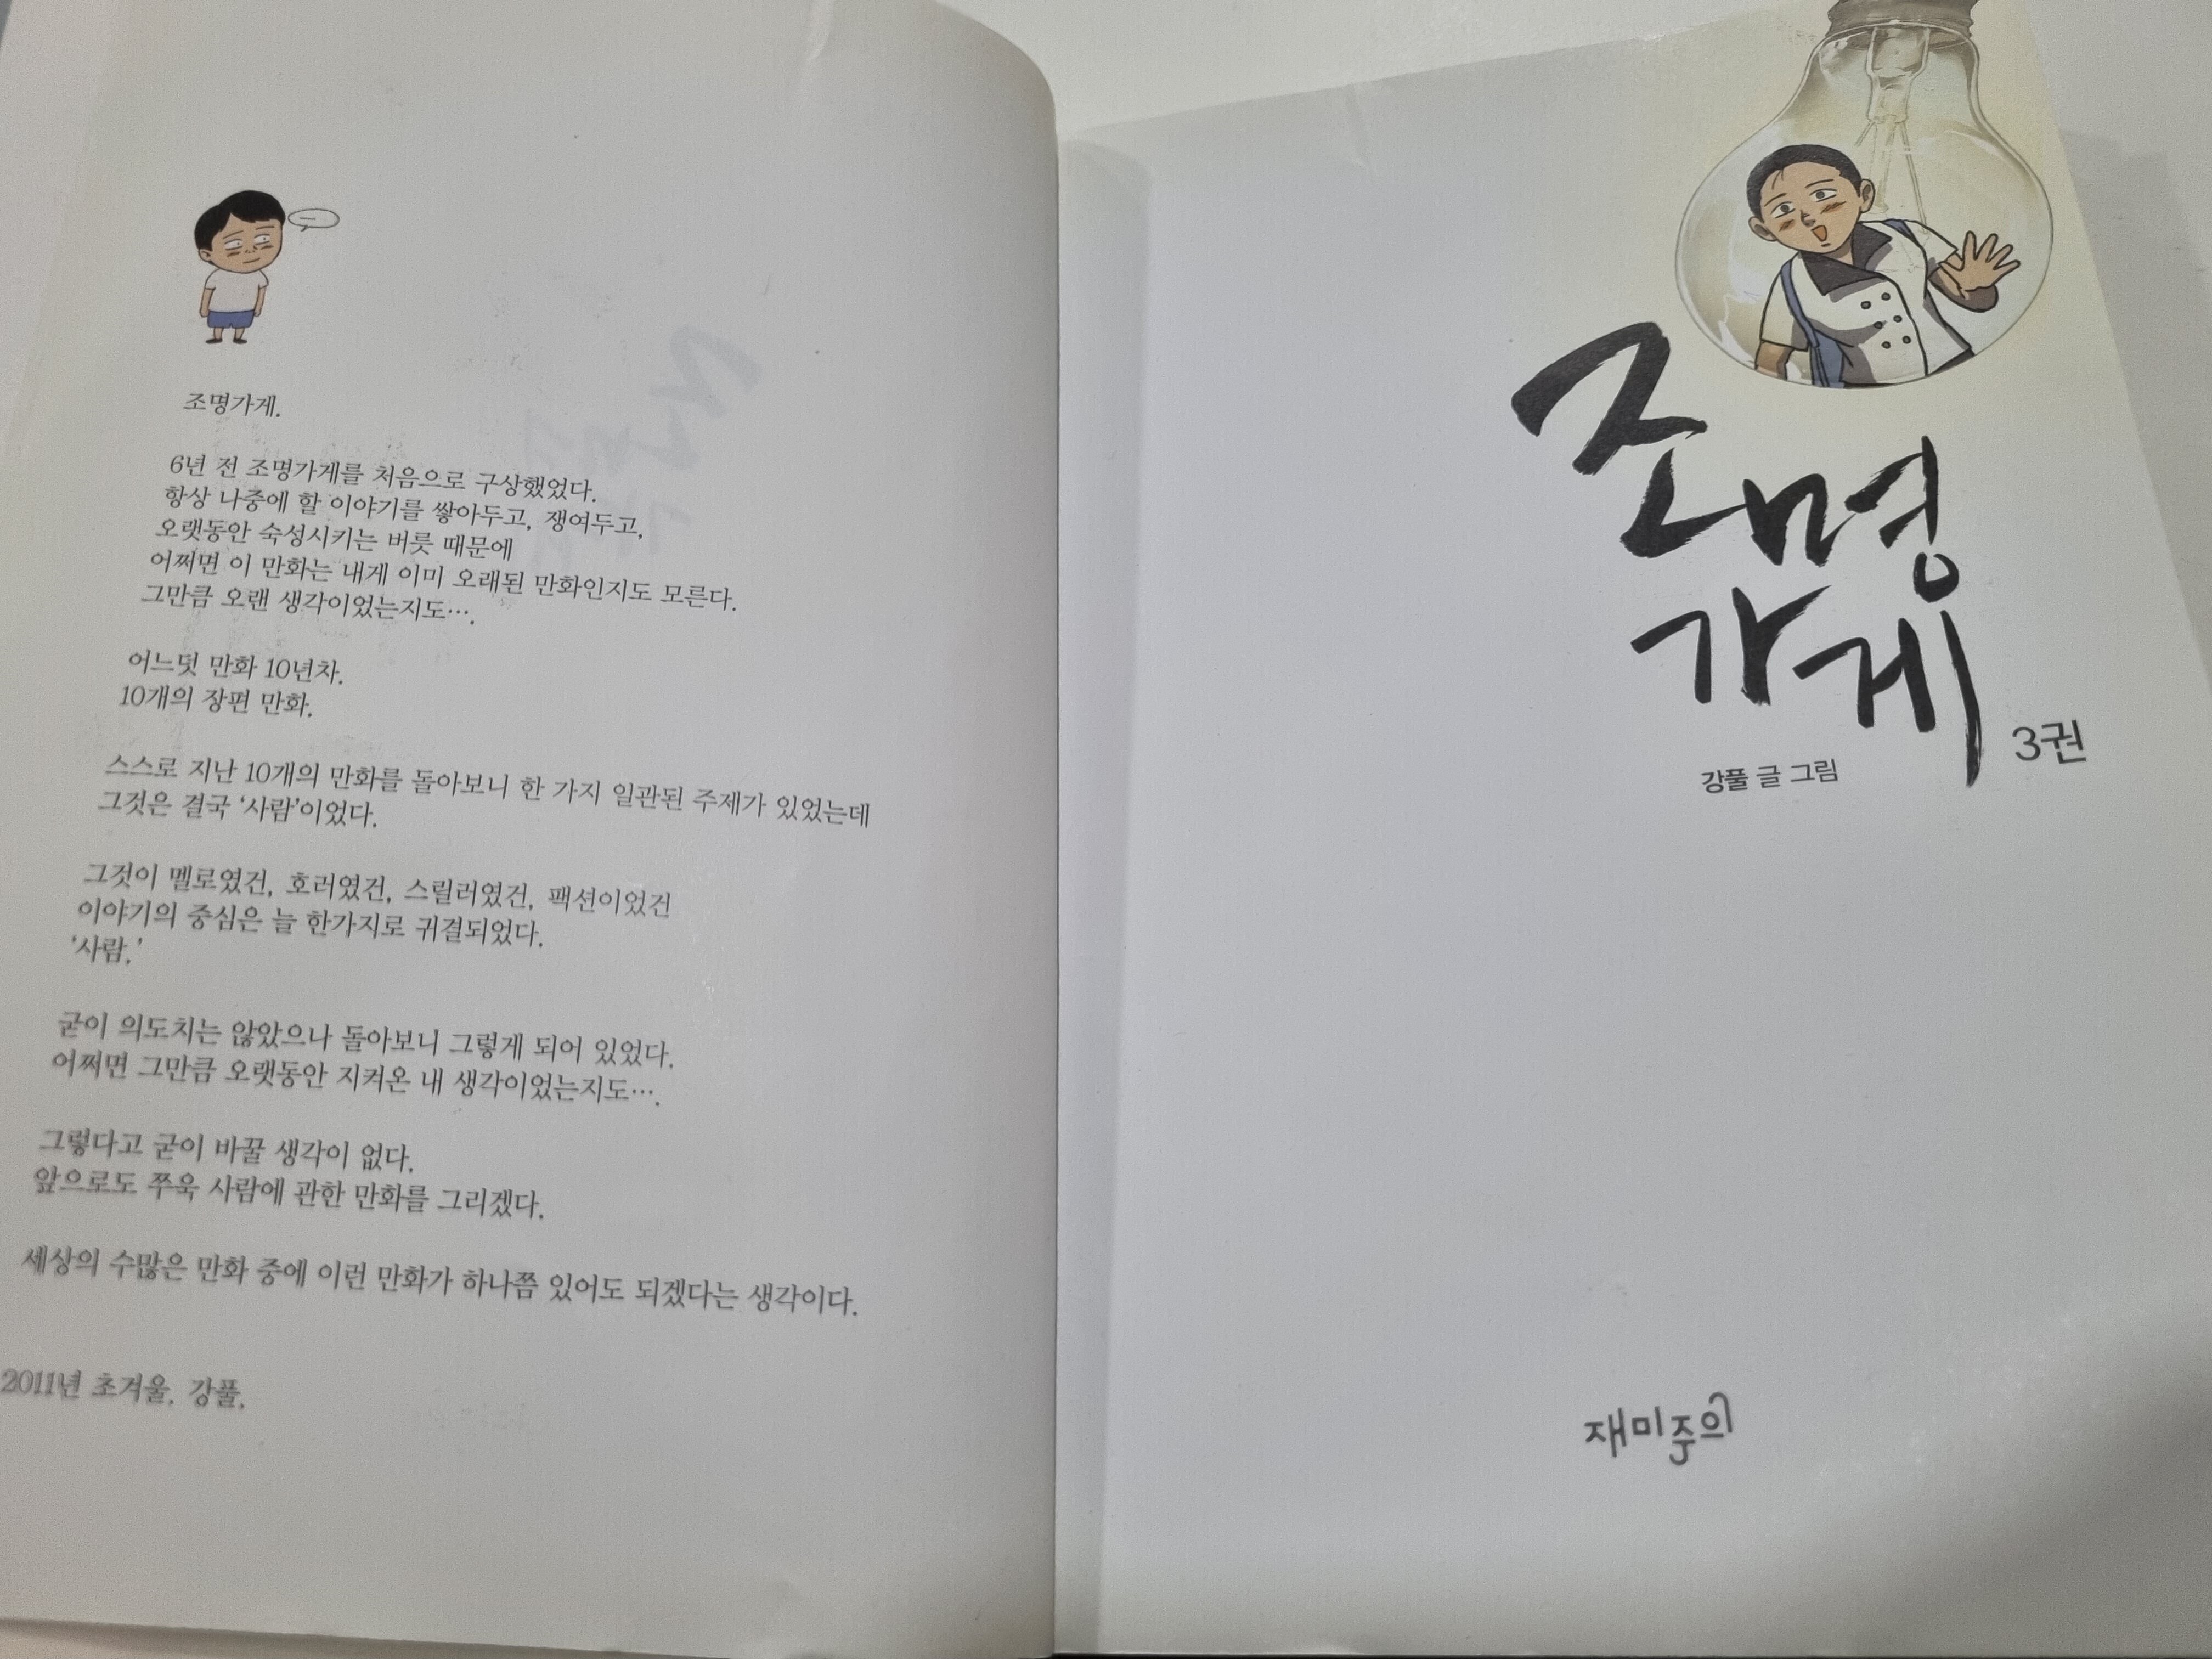 조명가게.
6년 전 조명가게를 처음으로 구상했었다.
항상 나중에 할 이야기를 쌓아두고, 쟁여두고,
오랫동안 숙성시키는 버릇 때문에
어쩌면 이 만화는 내게 이미 오래된 만화인지도 모른다.
그만큼 오랜 생각이었는지도….
어느덧 만화 10년차.
10개의 장편 만화.
스스로 지난 10개의 만화를 돌아보니 한 가지 일관된 주제가 있었는데
그것은 결국 ‘사람’이었다.
그것이 멜로였건, 호러였건, 스릴러였건, 팩션이었건
이야기의 중심은 늘 한가지로 귀결되었다.
‘사람.’
굳이 의도치는 않았으나 돌아보니 그렇게 되어 있었다.
어쩌면 그만큼 오랫동안 지켜온 내 생각이었는지도….
그렇다고 굳이 바꿀 생각이 없다.
앞으로도 쭈욱 사람에 관한 만화를 그리겠다.
세상의 수많은 만화 중에 이런 만화가 하나쯤 있어도 되겠다는 생각이다.
2011년 초겨울. 강풀.
조명
가게
3권
강풀 글 그림
재미주의